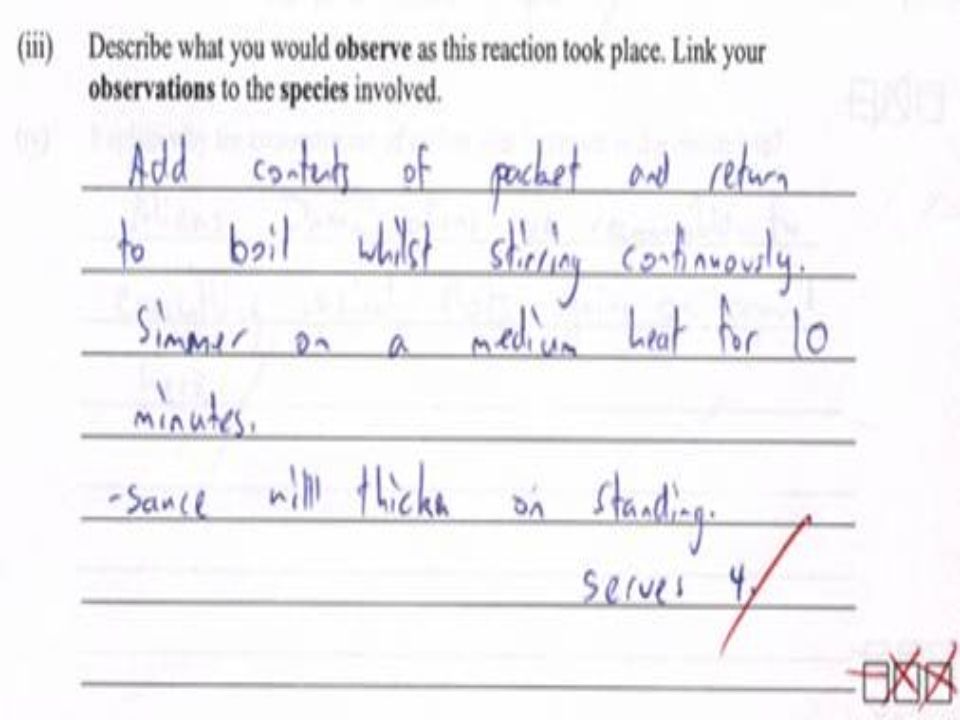 (iii) Describe what you would observe as this reaction took place. Link your
observations to the species involved.
Add contents of packet and return
to boil whilst stirring continuously.
Simmer on a medium heat for 10
minutes.
-sauce will thicken on standing.
serves 4.